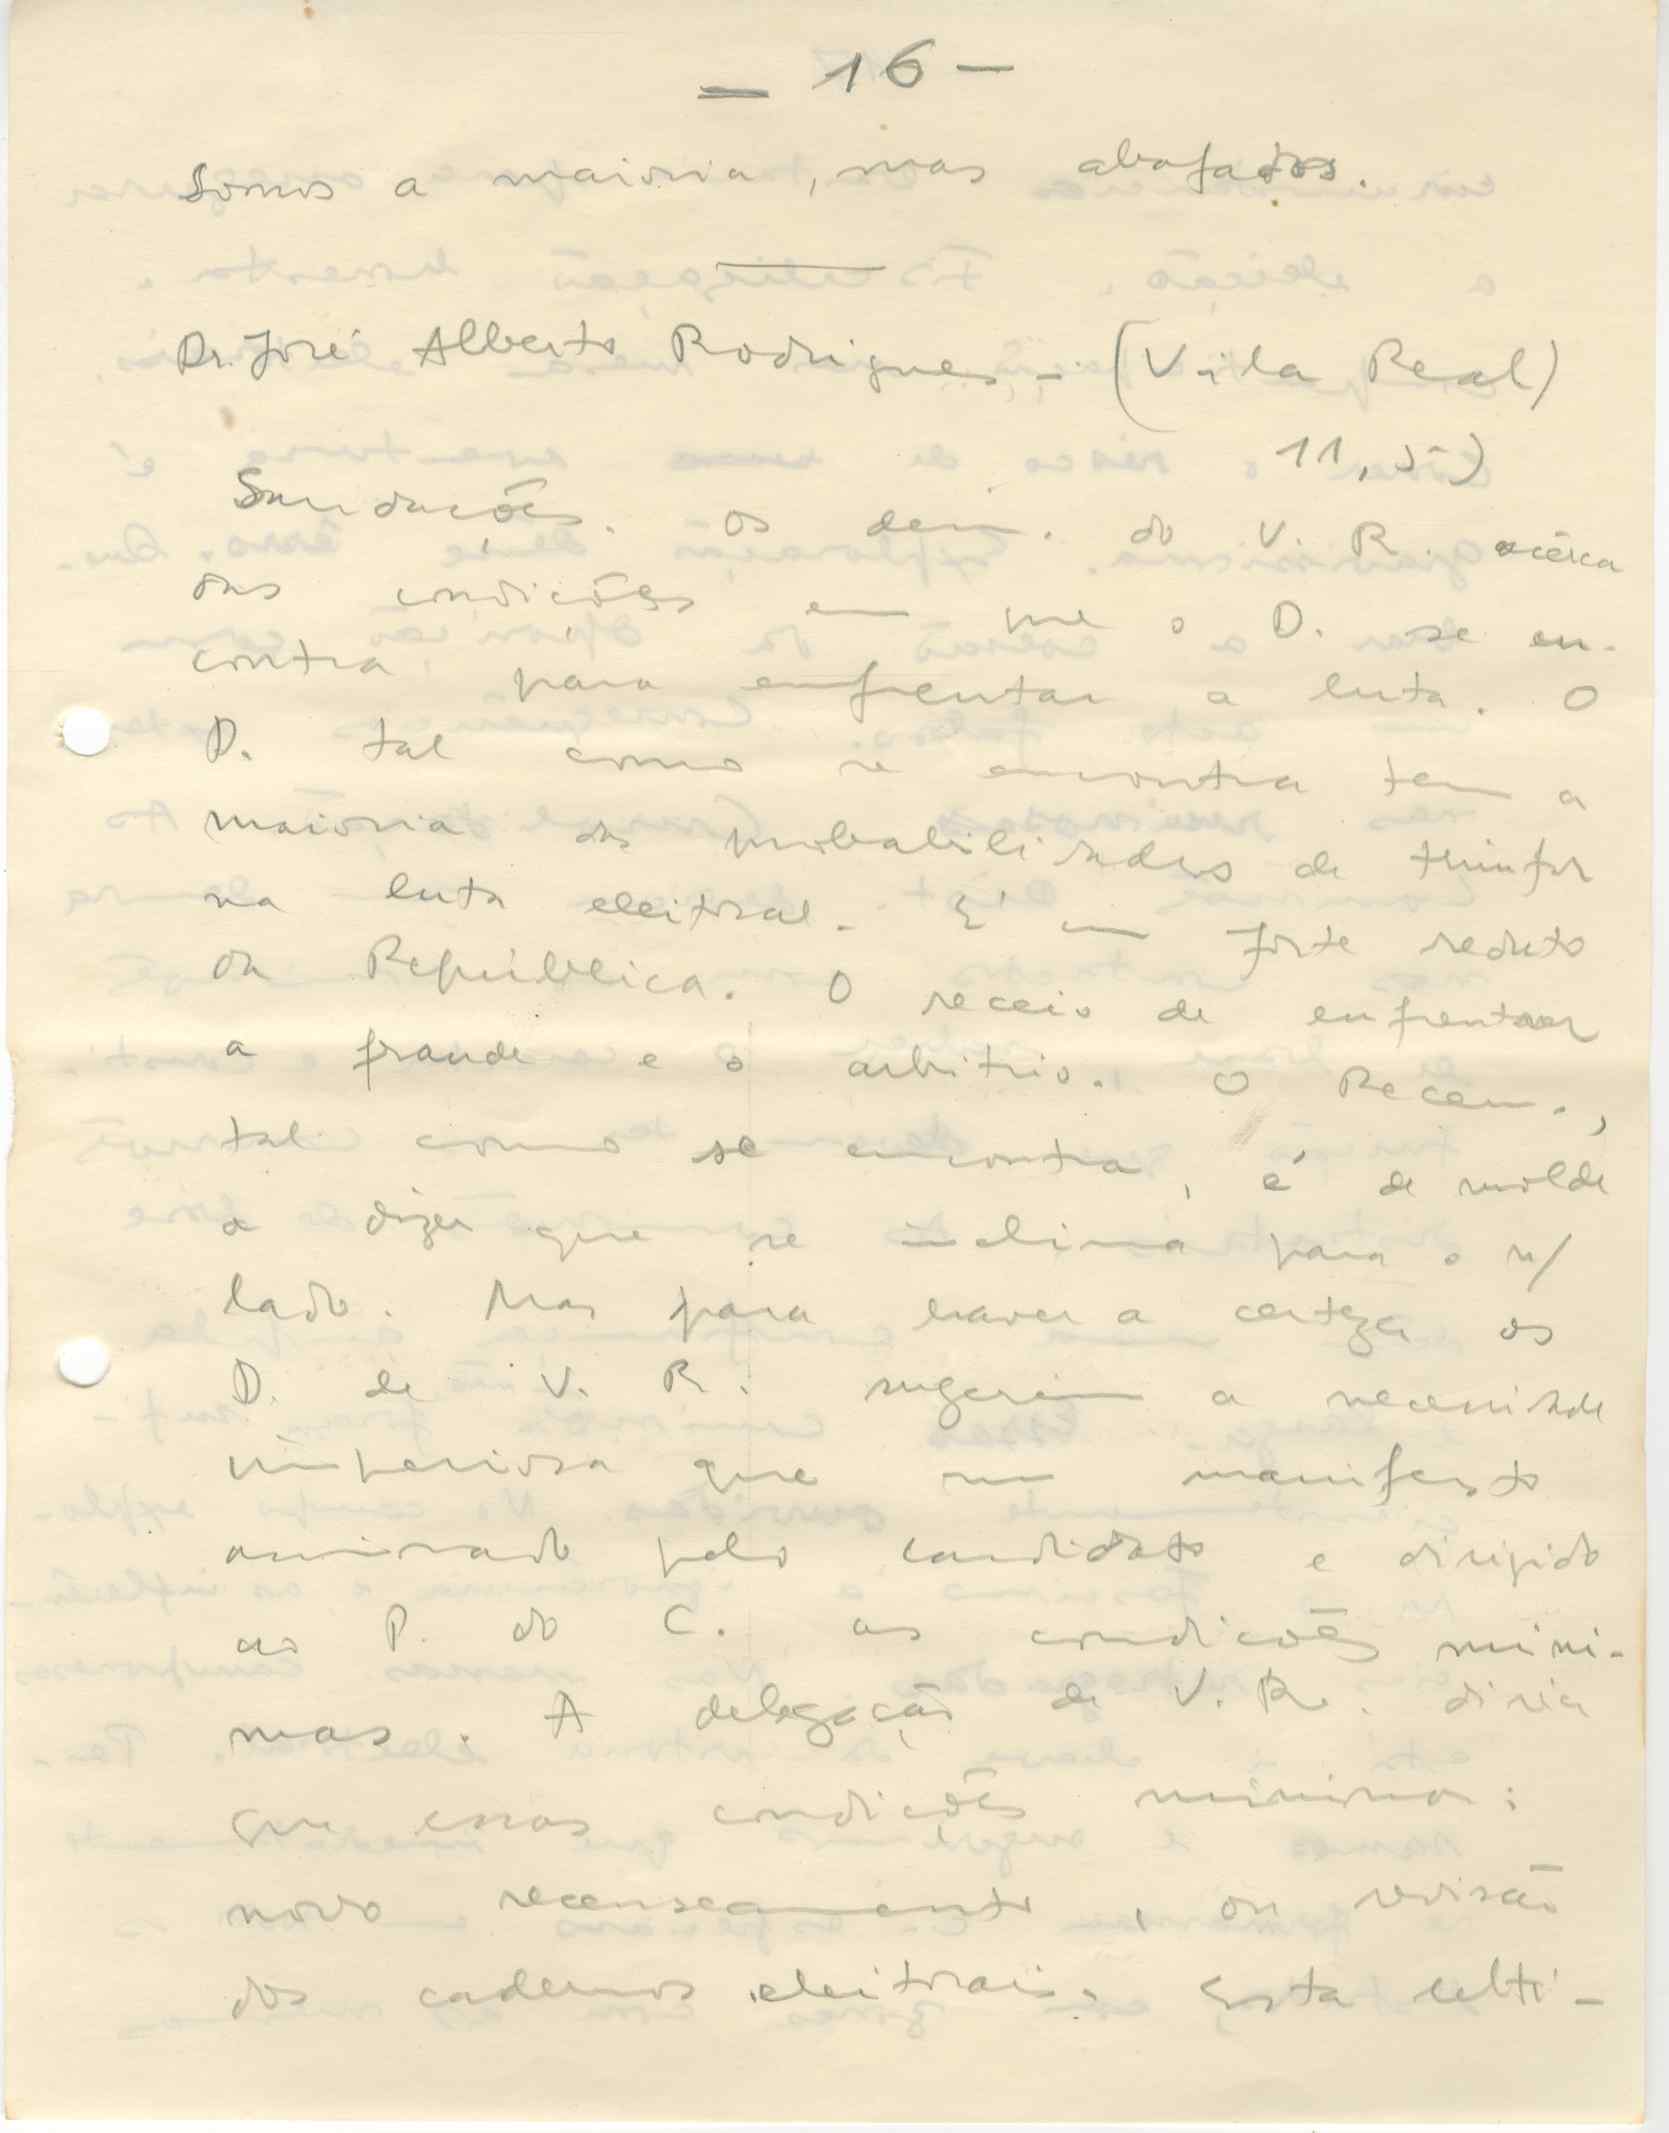 — 16 —
Somos a maioria, mas abafados.
Dr. José Alberto Rodrigues - (Vila Real)
11,5)
Saudações. Os dem. do V. R. acêrca
das condições em que o D. se en-
contra para enfrentar a luta. O
D. tal como se encontra tem a
maioria das probabilidades de triunfar
na luta eleitoral. É um forte reduto
da República. O receio de enfrentar
a fraude e o arbitrio. O Recen.,
tal como se encontra, é de molde
a dizer que se inclina para o n/
lado. Mas para haver a certeza os
D. de V. R. sugerem a necessidade
imperiosa que num manifesto
assinado pelo candidato e dirigido
ao P. do C. as condições míni-
mas. A delegação de V. R. diria
que essas condições minimas:
novo recenseamento, ou revisão
dos cadernos eleitorais. Esta ulti-